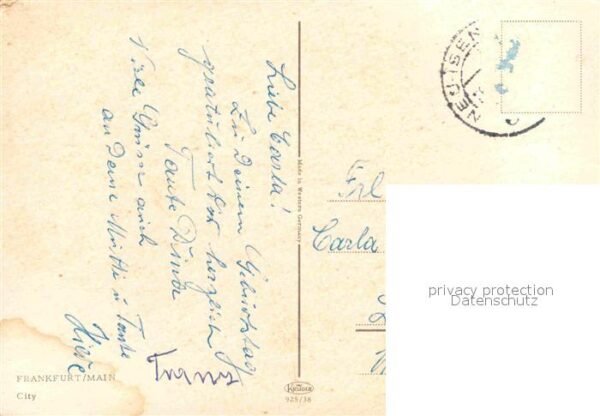 Liebe Carla!
Zu Deinem Geburtstag
gratuliert Dir herzlich
Tante
Viele Grüsse auch
an Deine Mutti u Tante
Franz
FRANKFURT/MAIN
City
Made in Western Germany
Krüger
925/38
NEU-ISEN
Frl
Carla
privacy protection
Datenschutz